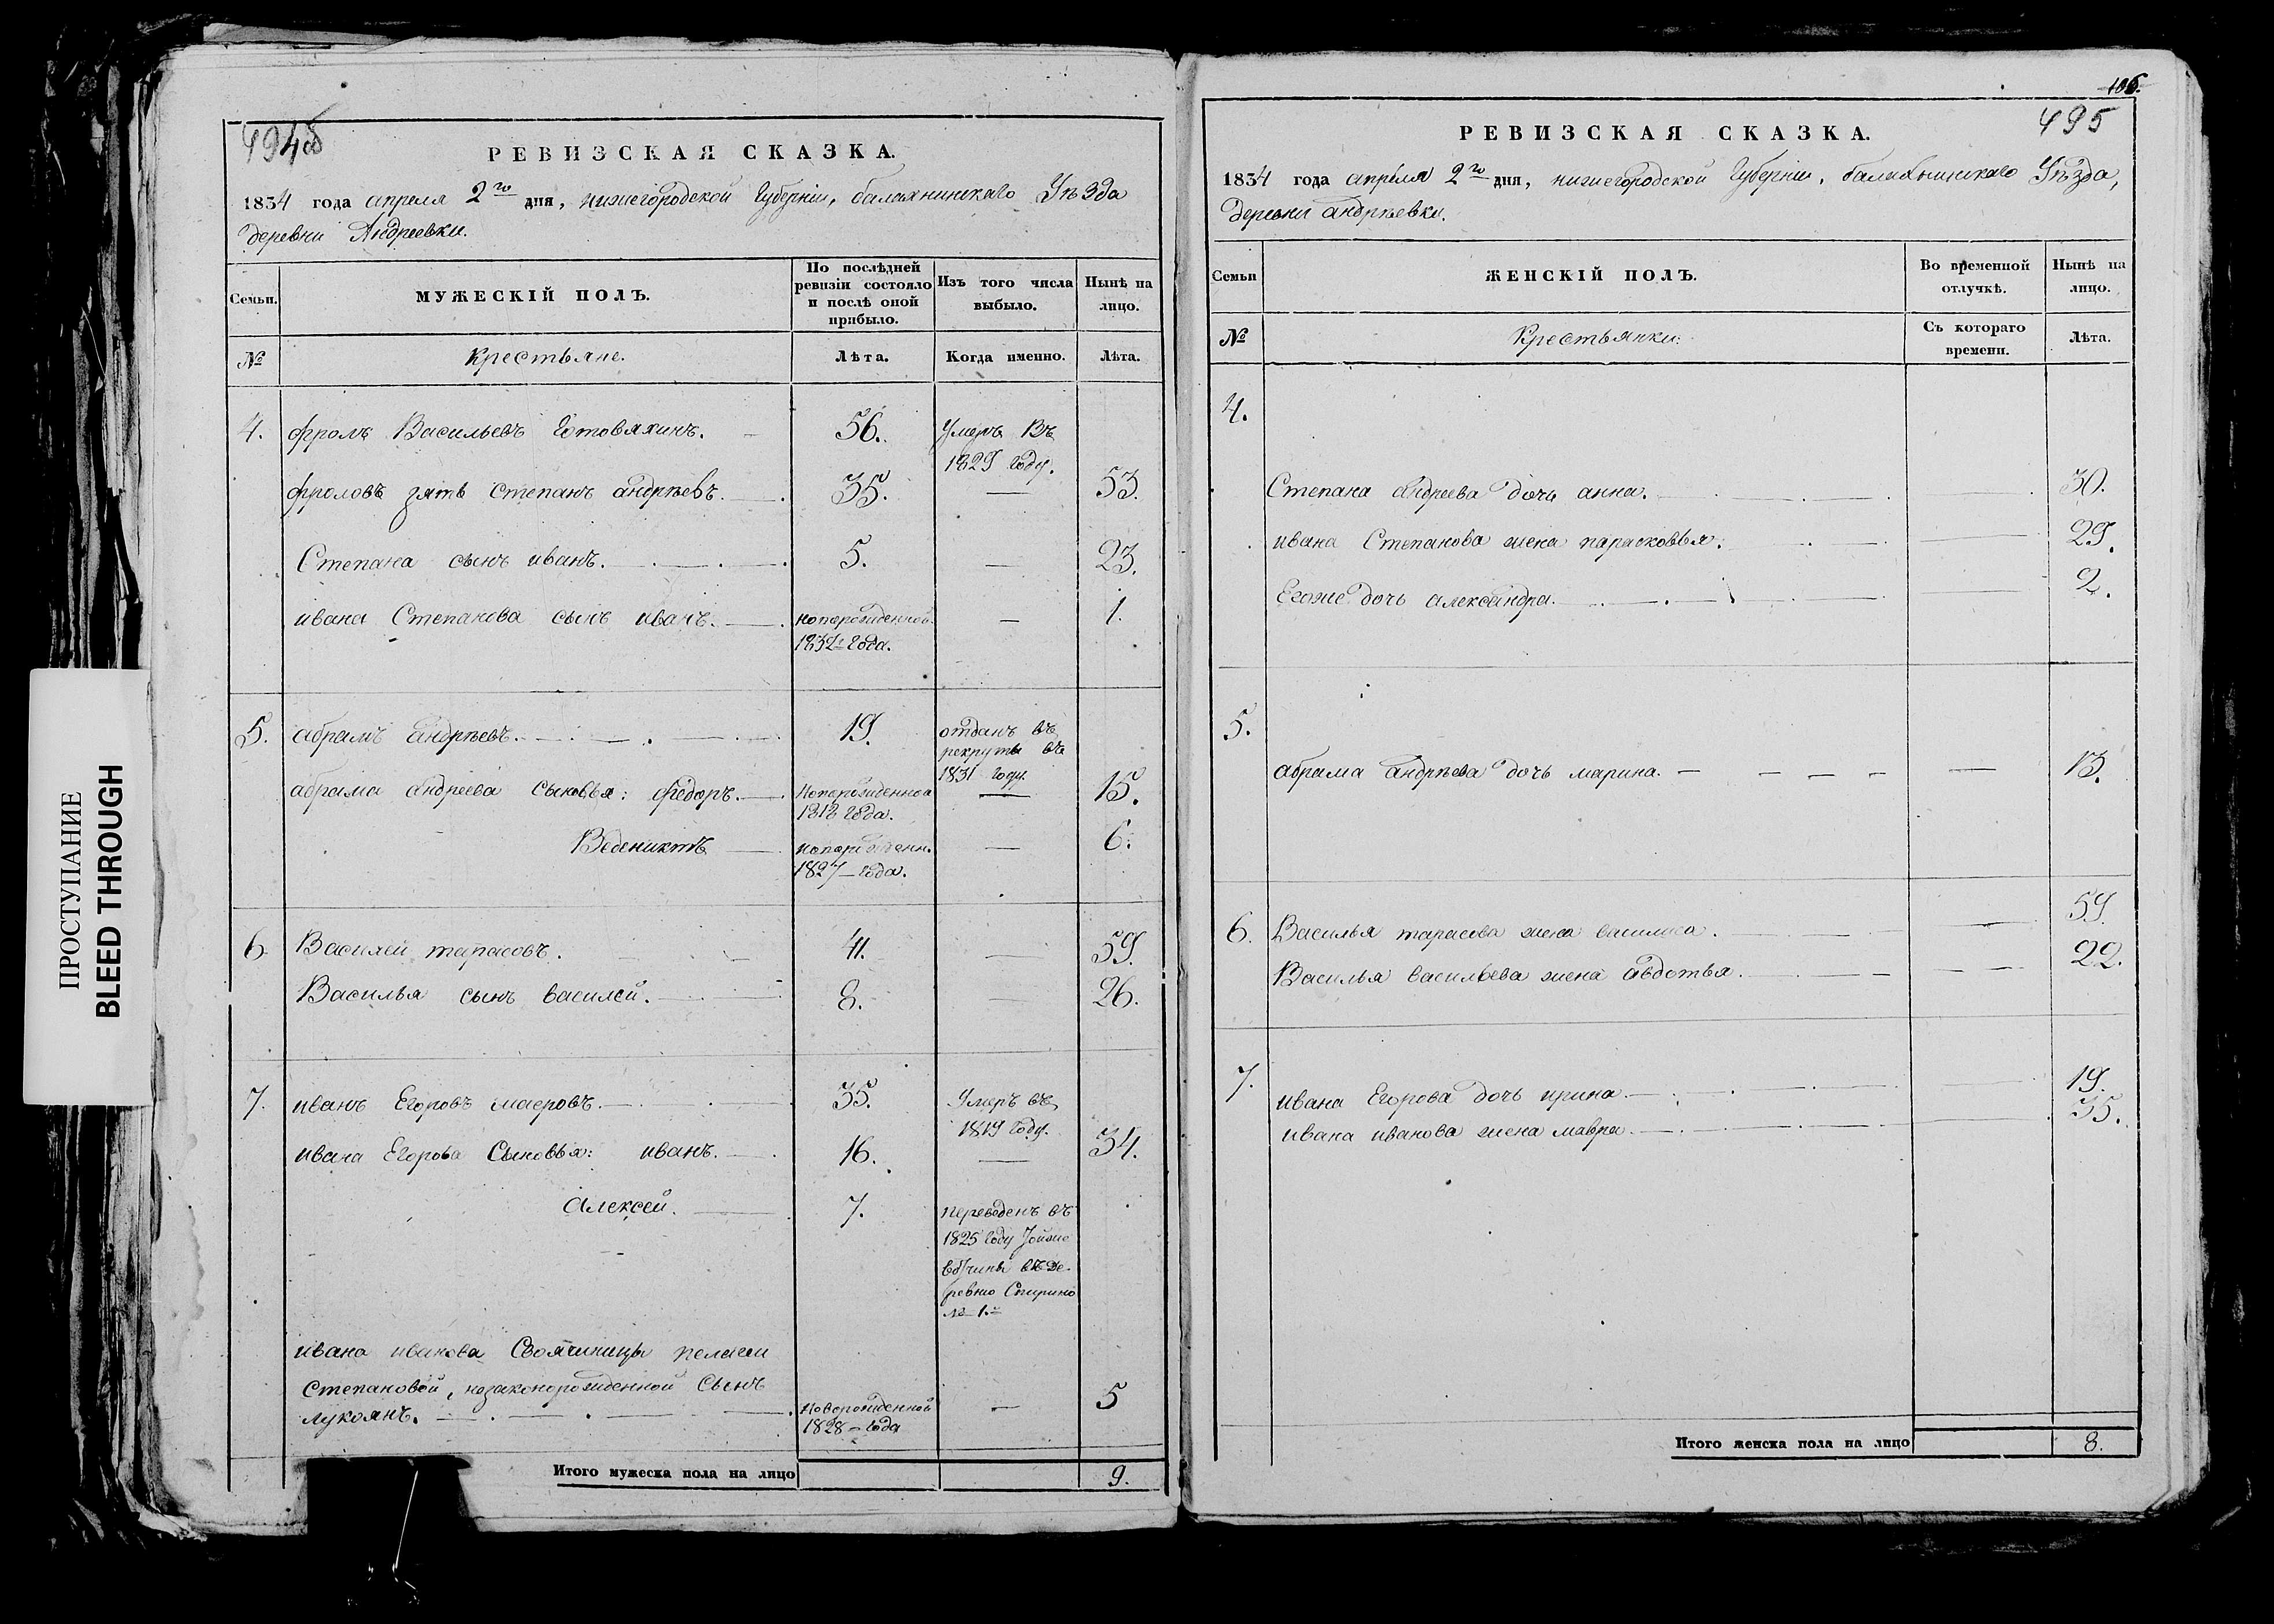 ПРОСТУПАНИЕ
BLEED THROUGH
494об
РЕВИЗСКАЯ СКАЗКА.
1834 года апреля 2го дня, нижегородской Губернiи, балахнинскаго Уѣзда
деревни Андреевки.
Семьи.
МУЖЕСКІЙ ПОЛЪ.
По послѣдней ревизіи состояло и послѣ оной прибыло.
Изъ того числа выбыло.
Нынѣ на лицо.
№
Крестьяне.
Лѣта.
Когда именно.
Лѣта.
4. фролъ Васильевъ Готовяхинъ. 56. Умеръ Въ
1829 Году.
фроловъ зять Степанъ андрѣевъ. 35. 53.
Степана сынъ иванъ. 5. 23.
ивана Степанова сынъ иванъ. новорожденной 1.
1832 Года.
5. абрамъ андрѣевъ. 19. отданъ въ
рекруты въ
1831 году.
абрама андреева сыновья: федоръ. Новорожденной 15.
1818 Года.
Веденихтъ новорожденн. 6.
1827 года.
6 Василей тарасовъ. 41. 59.
Василья сынъ василей. 8. 26.
7. иванъ Егоровъ маеровъ. 35. Умеръ въ
1819 Году.
ивана Егорова Сыновья: иванъ. 16. 34.
Алексей. 7. переведенъ въ
1825 Году Тойже
вотчины въ де-
ревню Спирино
№ 1.
ивана иванова Своячиницы пелагеи
Степановой, незаконорожденной Сынъ
лукоянъ. новорожденной 5
1828 года
Итого мужеска пола на лицо 9.
106.
495
РЕВИЗСКАЯ СКАЗКА.
1834 года апреля 2го дня, нижегородской Губернiи, балахнинскаго Уѣзда,
деревни андрѣевки.
Семьи
ЖЕНСКІЙ ПОЛЪ.
Во временной отлучкѣ.
Нынѣ на лицо.
№
Крестьянки:
Съ котораго времени.
Лѣта.
4.
Степана андреева дочь анна. 30.
ивана Степанова жена парасковья. 29.
Егоже дочь александра. 2.
5.
абрама андрѣева дочь марина. 13.
6. Василья тарасова жена василиса. 59.
Василья васильева жена авдотья. 22.
7.
ивана Егорова дочь ирина. 19.
ивана иванова жена мавра. 35.
Итого женска пола на лицо 8.